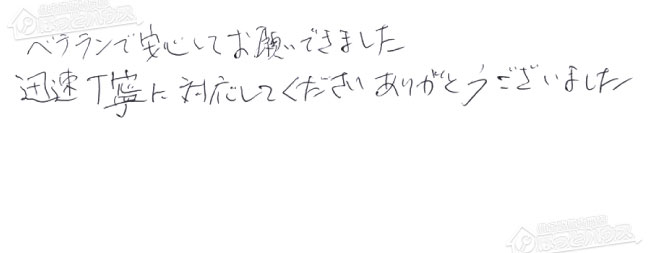 ベテランで安心してお願いできました
迅速丁寧に対応してくださいありがとうございました